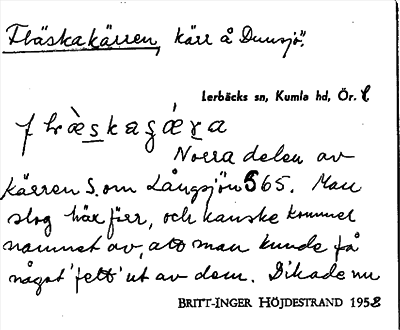 Fläskakärren, kärr å Dunsjö".
Lerbäcks sn, Kumla hd, Ör. l
Norra delen av
kärren S. om Långsjön 565. Man
slog här förr, och kanske kommer
namnet av, att man kunde få
något 'fett' ut av dem. Dikade nu
BRITT-INGER HÖJDESTRAND 1952